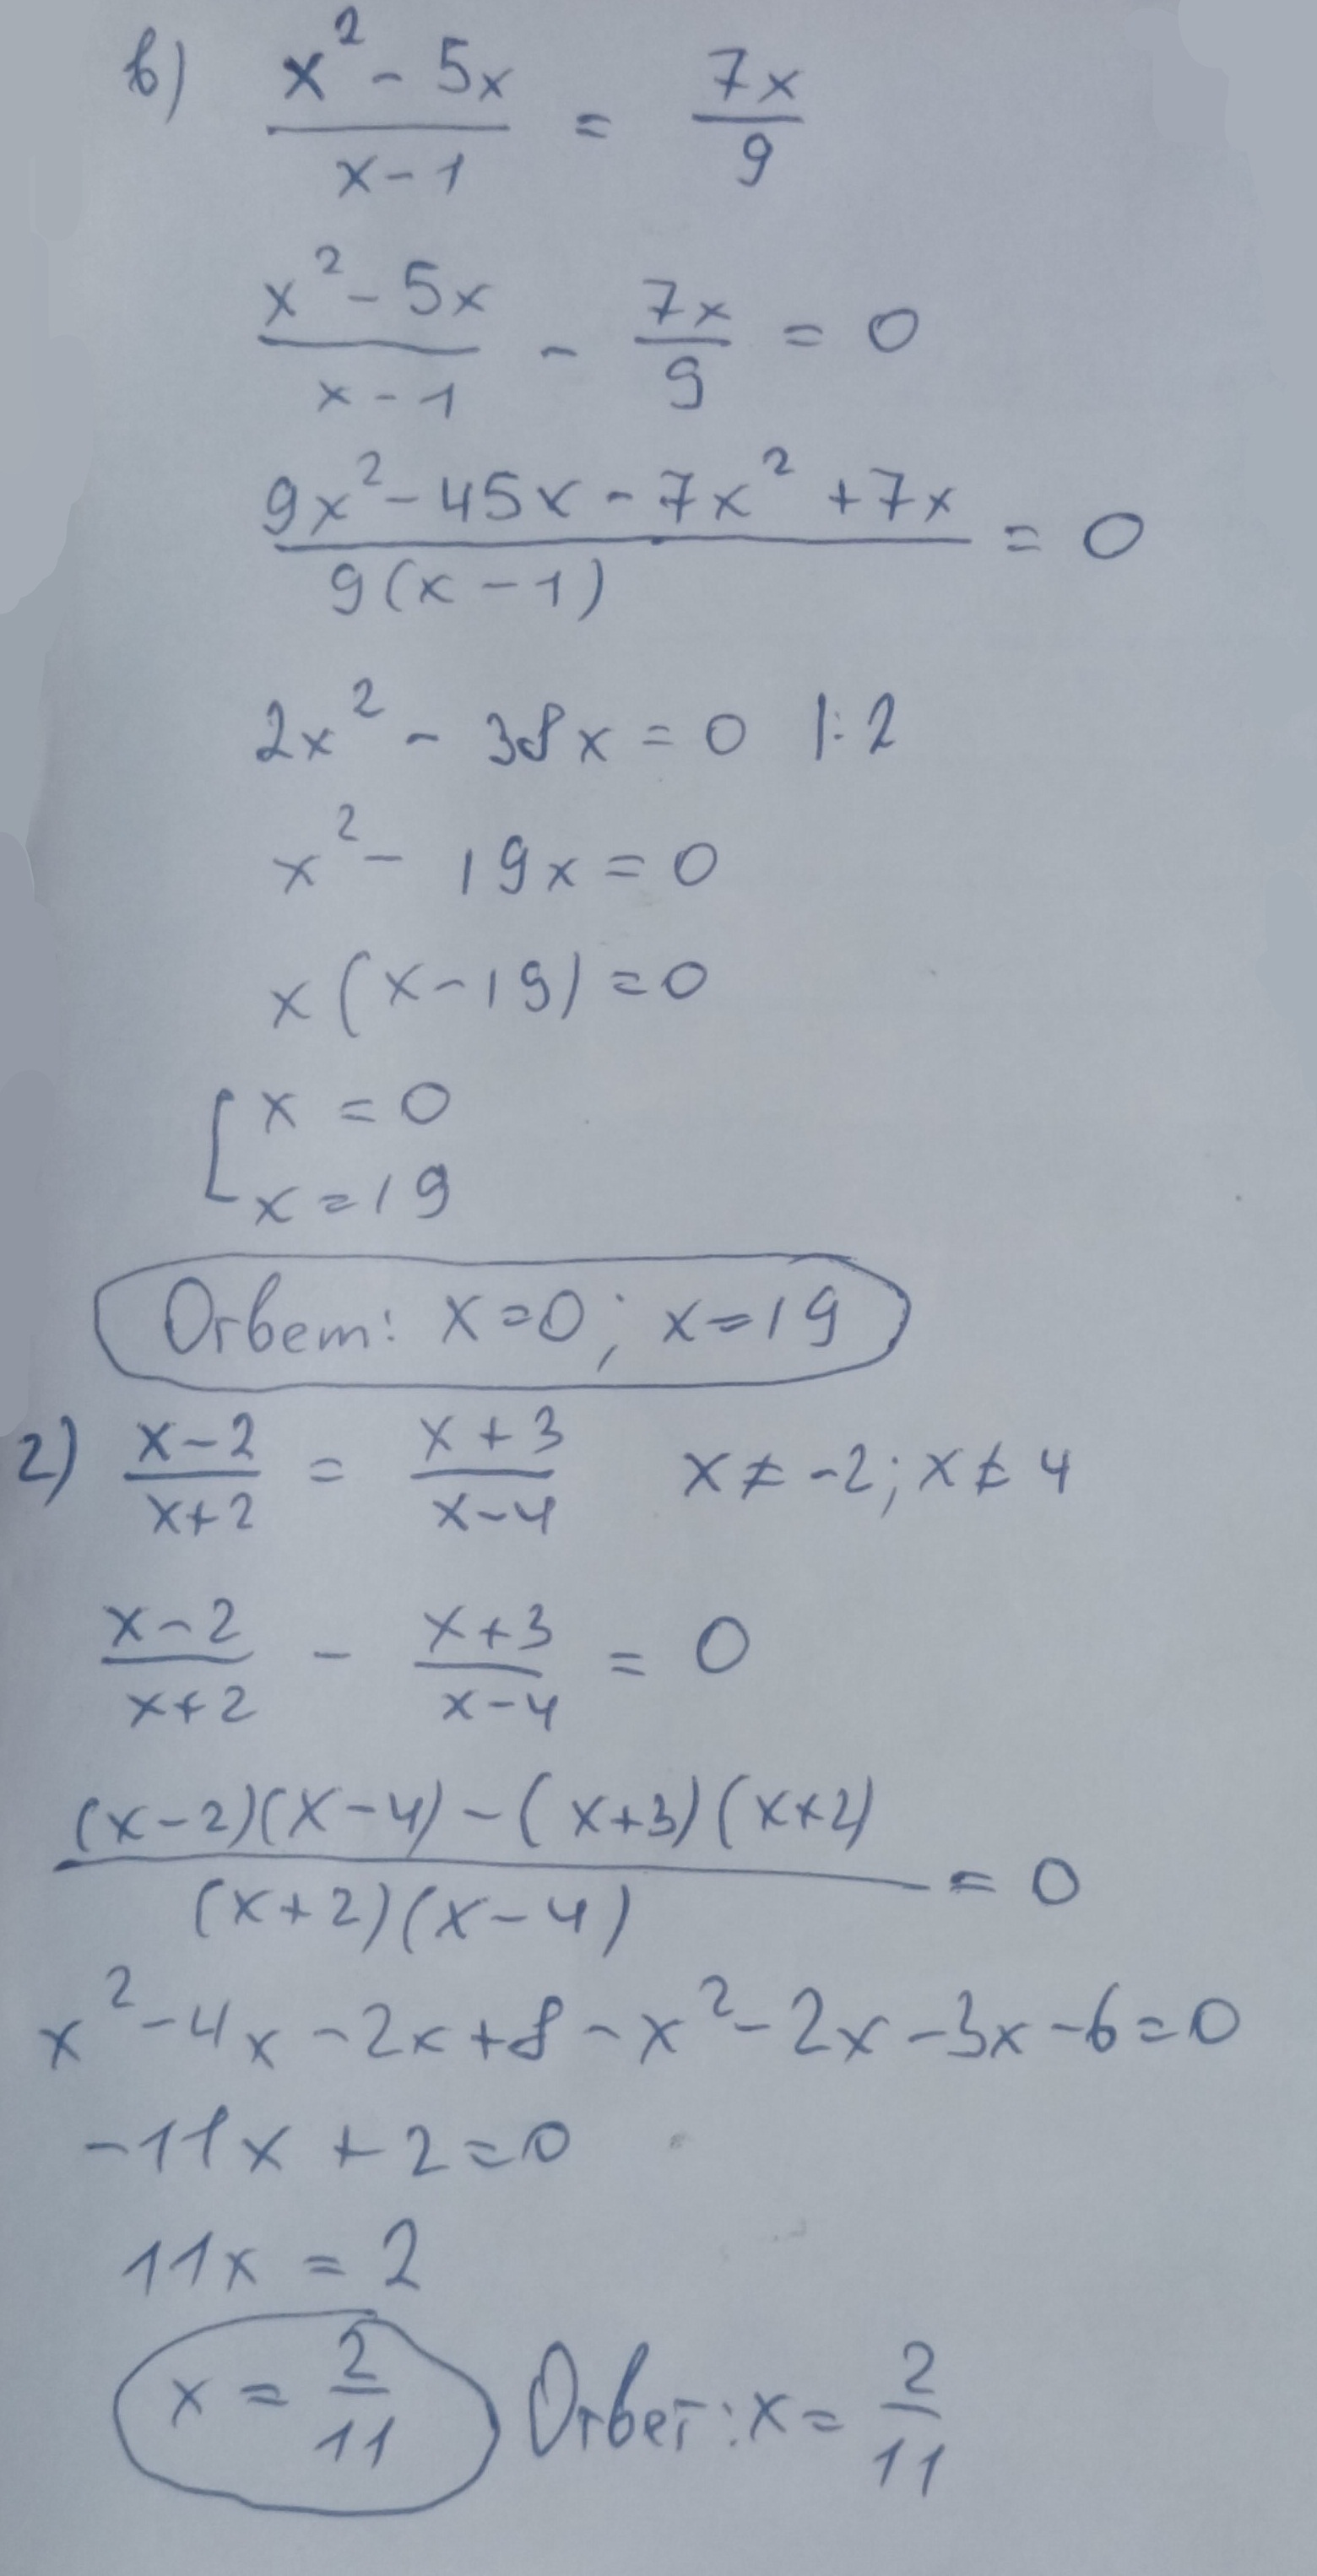 в) (x² - 5x)/(x - 1) = 7x/9
(x² - 5x)/(x - 1) - 7x/9 = 0
(9x² - 45x - 7x² + 7x)/(9(x - 1)) = 0
2x² - 38x = 0 |: 2
x² - 19x = 0
x(x - 19) = 0
[x = 0
x = 19
Ответ: x = 0; x = 19
г) (x - 2)/(x + 2) = (x + 3)/(x - 4) x ≠ -2; x ≠ 4
(x - 2)/(x + 2) - (x + 3)/(x - 4) = 0
((x - 2)(x - 4) - (x + 3)(x + 2))/((x + 2)(x - 4)) = 0
x² - 4x - 2x + 8 - x² - 2x - 3x - 6 = 0
-11x + 2 = 0
11x = 2
x = 2/11 Ответ: x = 2/11